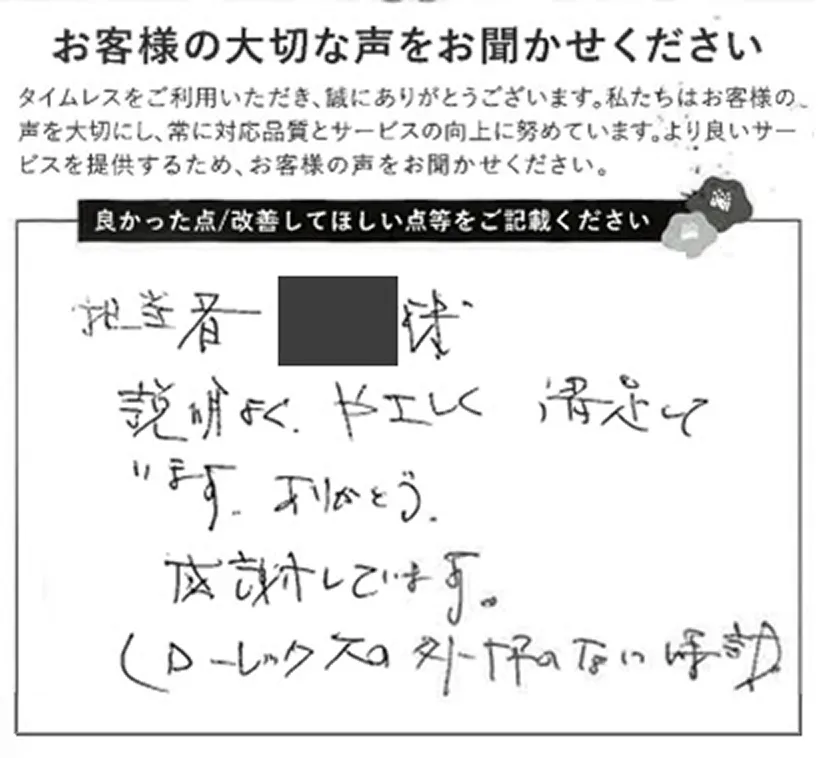 お客様の大切な声をお聞かせください
タイムレスをご利用いただき、誠にありがとうございます。私たちはお客様の
声を大切にし、常に対応品質とサービスの向上に努めています。より良いサー
ビスを提供するため、お客様の声をお聞かせください。
良かった点/改善してほしい点等をご記載ください
担当者 様
説明よく、やさしく 満足して
います。ありがとう。
感謝しています。
(ローレックスの の ない 時計)